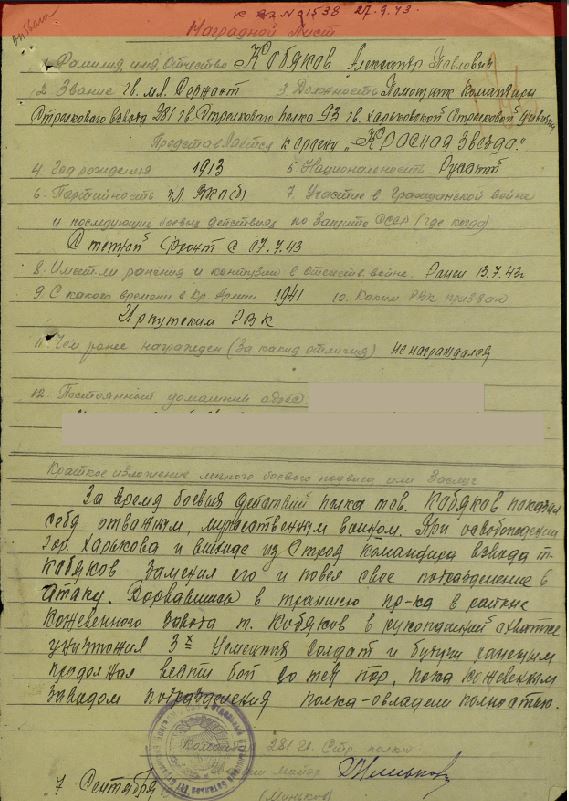 к 22 № 21538 27.9.43.
Наградной Лист
1. Фамилия имя отчество Кобяков Александр Павлович
2. Звание гв. мл. Сержант 3. Должность Помощник Командира
Стрелкового взвода 281 гв. Стрелкового полка 93 гв. Харьковской Стрелковой дивизии
Представляется к ордену „КРАСНАЯ Звезда"
4. Год рождения 1913 5. Национальность Русский
6. Партийность чл ВКП(б) 7. Участие в Гражданской войне
и последующие боевых действиях по защите СССР (где когда)
Степной Фронт с 07.7.43
8. Имеет ли ранения и контузии в отечеств. войне. Ранен 13.7.42г
9. С какого времени в Кр. Армии 1941 10. Каким РВК призван
Иркутским РВК
11. Чем ранее награжден (за какие отличия) не награждался
12. Постоянный домашний адрес
Краткое изложение личного боевого подвига или заслуг
За время боевых действий полка тов. Кобяков показал
себя отважным, мужественным воином. При освобождении
гор. Харькова и выходе из Строя Командира взвода т.
Кобяков заменил его и повел свое подразделение в
атаку. Ворвавшись в траншею пр-ка в районе
Кожевенного завода т. Кобяков в рукопашной схватке
уничтожил 3х Немецких солдат и будучи раненым
продолжал вести бой до тех пор, пока Кожевенным
заводом подразделения полка овладели полностью.
281 гв. Стр. полка
Майор
(Миньков)
7 Сентября